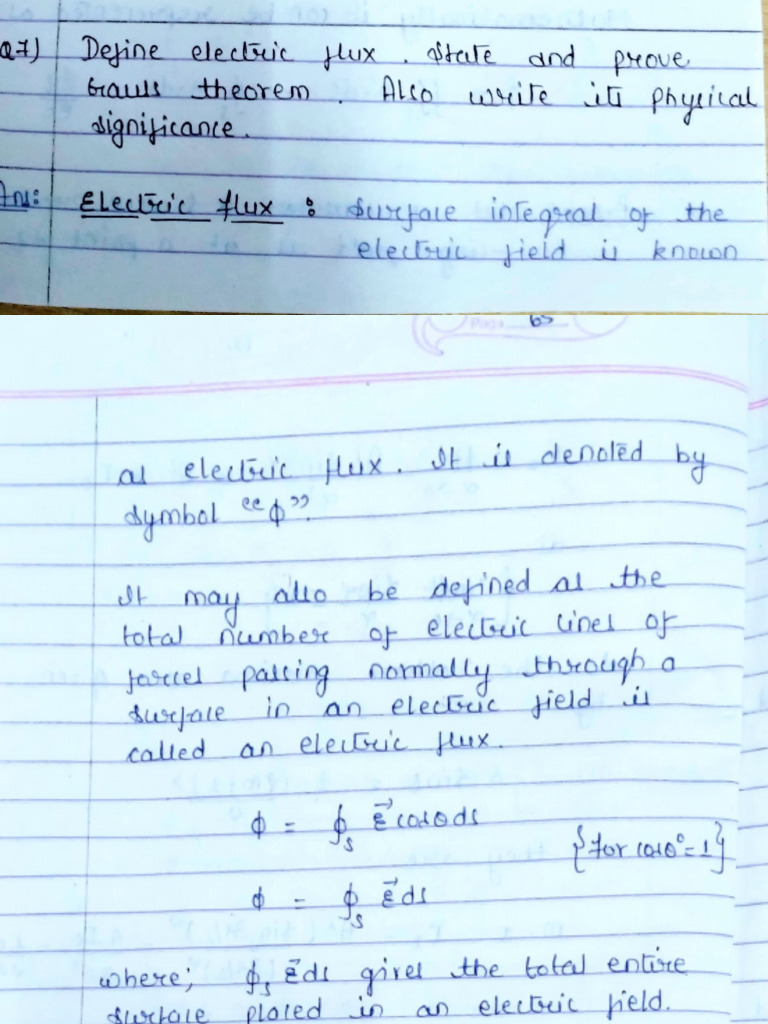 Q7) Define electric flux. State and prove
Gauss theorem. Also write its physical
significance.
Ans: Electric flux : Surface integral of the
electric field is known
Page 65
as electric flux. It is denoted by
symbol "ϕ".
It may also be defined as the
total number of electric lines of
forces passing normally through a
surface in an electric field is
called an electric flux.
ϕ = ∮s E⃗ cosθ ds
{for cos0° = 1}
ϕ = ∮s E⃗ ds
where; ∮s E⃗ds gives the total entire
surface placed in an electric field.